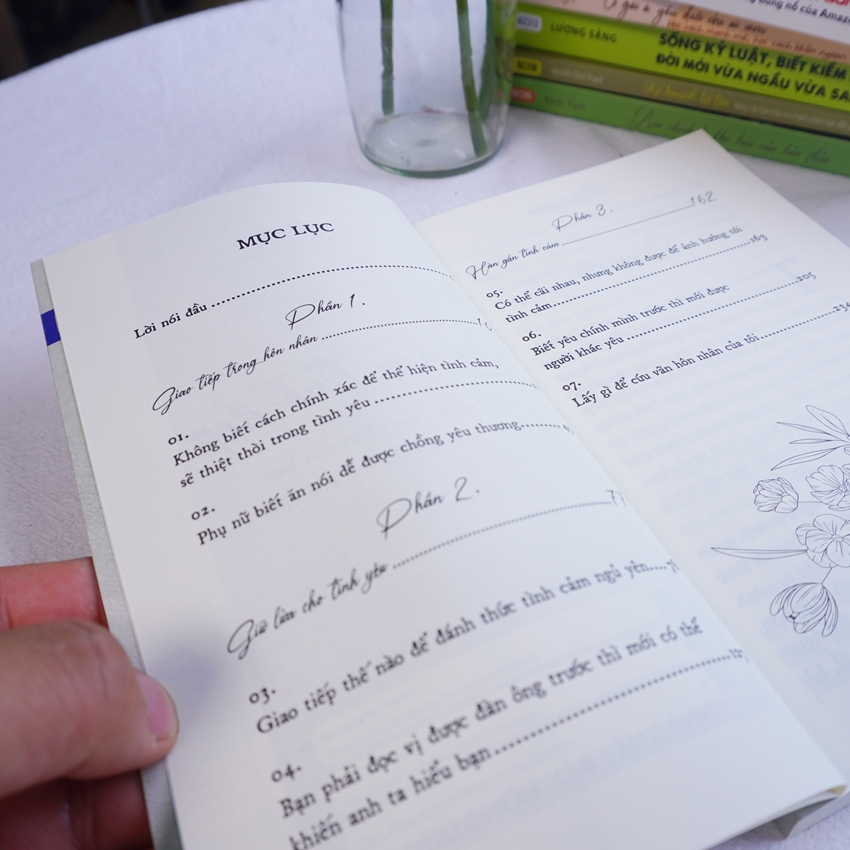 MỤC LỤC
Lời nói đầu
Phần 1.
Giao tiếp trong hôn nhân
01.
Không biết cách chính xác để thể hiện tình cảm,
sẽ thiệt thòi trong tình yêu
02.
Phụ nữ biết ăn nói dễ được chồng yêu thương
Phần 2.
Giữ lửa cho tình yêu
03.
Giao tiếp thế nào để đánh thức tình cảm ngủ yên
04.
Bạn phải đọc vị được đàn ông trước thì mới có thể
khiến anh ta hiểu bạn
Phần 3.
Hàn gắn tình cảm 162
05.
Có thể cãi nhau, nhưng không được để ảnh hưởng tới
tình cảm 163
06.
Biết yêu chính mình trước thì mới được
người khác yêu 205
07.
Lấy gì để cứu vãn hôn nhân của tôi
LƯƠNG SẢNG
SỐNG KỶ LUẬT, BIẾT KIỀM
ĐỜI MỚI VỪA NGẦU VỪA